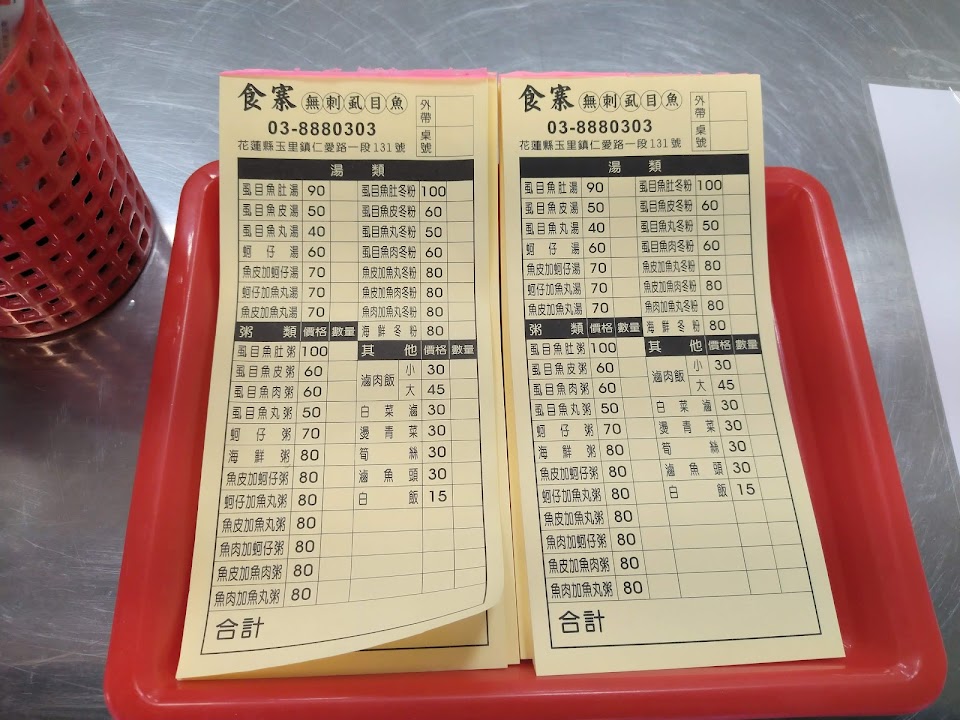 食寨 無刺虱目魚 外帶
03-8880303 桌號
花蓮縣玉里鎮仁愛路一段131號
湯類
虱目魚肚湯 90 虱目魚肚冬粉 100
虱目魚皮湯 50 虱目魚皮冬粉 60
虱目魚丸湯 40 虱目魚丸冬粉 50
蚵仔湯 60 虱目魚肉冬粉 60
魚皮加蚵仔湯 70 魚皮加魚丸冬粉 80
蚵仔加魚丸湯 70 魚皮加魚肉冬粉 80
魚皮加魚丸湯 70 魚肉加魚丸冬粉 80
粥類 價格 數量 海鮮冬粉 80
虱目魚肚粥 100 其他 價格 數量
虱目魚皮粥 60 滷肉飯 小 30
虱目魚肉粥 60 大 45
虱目魚丸粥 50 白菜滷 30
蚵仔粥 70 燙青菜 30
海鮮粥 80 筍絲 30
魚皮加蚵仔粥 80 滷魚頭 30
蚵仔加魚丸粥 80 白飯 15
魚皮加魚丸粥 80
魚肉加蚵仔粥 80
魚皮加魚肉粥 80
魚肉加魚丸粥 80
合計
食寨 無刺虱目魚 外帶
03-8880303 桌號
花蓮縣玉里鎮仁愛路一段131號
湯類
虱目魚肚湯 90 虱目魚肚冬粉 100
虱目魚皮湯 50 虱目魚皮冬粉 60
虱目魚丸湯 40 虱目魚丸冬粉 50
蚵仔湯 60 虱目魚肉冬粉 60
魚皮加蚵仔湯 70 魚皮加魚丸冬粉 80
蚵仔加魚丸湯 70 魚皮加魚肉冬粉 80
魚皮加魚丸湯 70 魚肉加魚丸冬粉 80
粥類 價格 數量 海鮮冬粉 80
虱目魚肚粥 100 其他 價格 數量
虱目魚皮粥 60 滷肉飯 小 30
虱目魚肉粥 60 大 45
虱目魚丸粥 50 白菜滷 30
蚵仔粥 70 燙青菜 30
海鮮粥 80 筍絲 30
魚皮加蚵仔粥 80 滷魚頭 30
蚵仔加魚丸粥 80 白飯 15
魚皮加魚丸粥 80
魚肉加蚵仔粥 80
魚皮加魚肉粥 80
魚肉加魚丸粥 80
合計